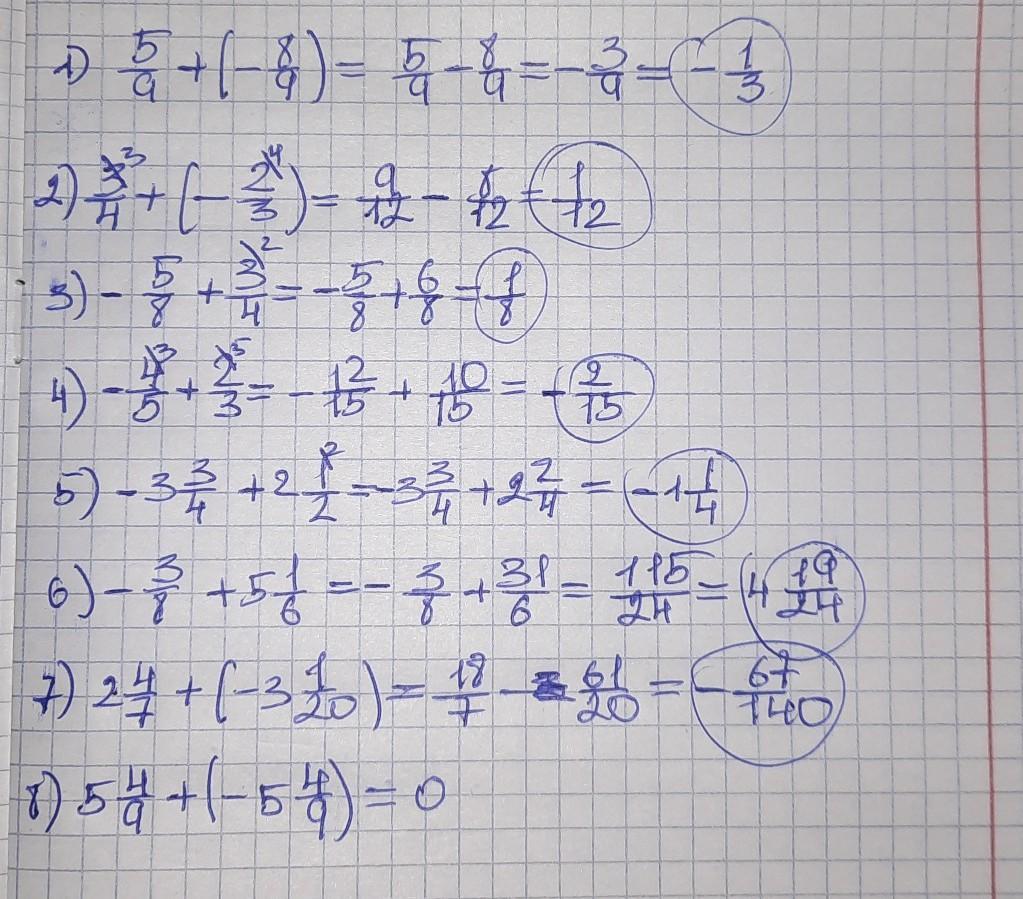 1) 5/9 + (- 8/9) = 5/9 - 8/9 = - 3/9 = - 1/3
2) 3/4 ³ + (- 2/3 ⁴) = 9/12 - 8/12 = 1/12
3) - 5/8 + 3/4 ² = - 5/8 + 6/8 = 1/8
4) - 4/5 ³ + 2/3 ⁵ = - 12/15 + 10/15 = - 2/15
5) - 3 3/4 + 2 1/2 ² = - 3 3/4 + 2 2/4 = - 1 1/4
6) - 3/8 + 5 1/6 = - 3/8 + 31/6 = 115/24 = 4 19/24
7) 2 4/7 + (- 3 1/20) = 18/7 - 61/20 = - 67/140
8) 5 4/9 + (- 5 4/9) = 0